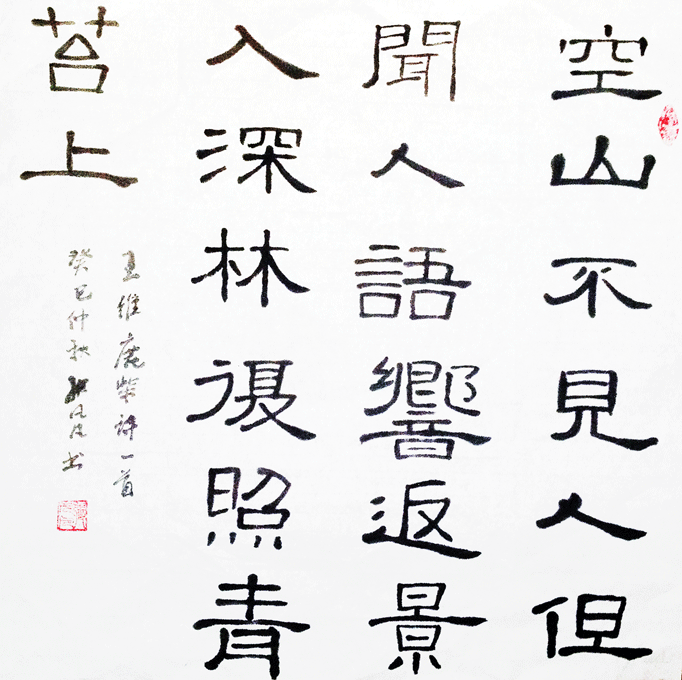 空山不見人但
聞人語響返景
入深林復照青
苔上
王維鹿柴詩一首
癸巳仲秋 书